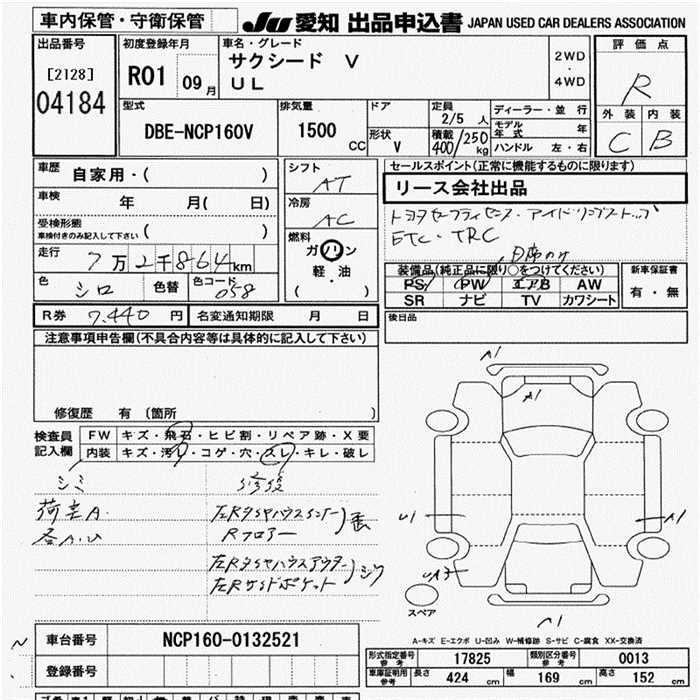 車内保管・守衛保管 JU 愛知 出品申込書 JAPAN USED CAR DEALERS ASSOCIATION
出品番号 初度登録年月 車名・グレード 評価点
[2128] R01 09月 サクシード V 2WD・4WD R
04184 UL 外装 内装
C B
型式 排気量 ドア 定員 2/5 人 ディーラー・並行
DBE-NCP160V 1500 CC 形状 V 積載 400/250 kg モデル年式 年
ハンドル 左・右
車歴 自家用・( ) シフト AT セールスポイント(正常に機能するものに限ります)
リース会社出品
車検 年 月( 日) 冷房 AC
受検形態 車検付きのみ記入して下さい ( )
ETC・TRC
走行 7万2千864km 燃料 ガソリン 軽・油 ( )
色 シロ 色替 色コード 058
装備品(純正品に限り○をつけてください) 新車保証書
PS PW エアB AW 有・無
SR ナビ TV カワシート
R券 7,440 円 名変通知期限 月 日 後日品
注意事項申告欄(不具合内容等は具体的に記入して下さい)
修復歴 有 〔箇所 〕
検査員記入欄 FW キズ・飛石・ヒビ割・リペア跡・X要
内装 キズ・汚れ・コゲ・穴・スレ・キレ・破レ
シミ 修復
荷室A.
各A.U
Rフロアー
A1
A1
U1
A1
UA3
A1
スペア
A-キズ E-エクボ U-凹み W-補修跡 S-サビ C-腐食 XX-交換済
N 車台番号 NCP160-0132521
登録番号
形式指定番号 参考 17825 類別区分番号 参考 0013
車庫証明用 参考 長さ 424 cm 幅 169 cm 高さ 152 cm